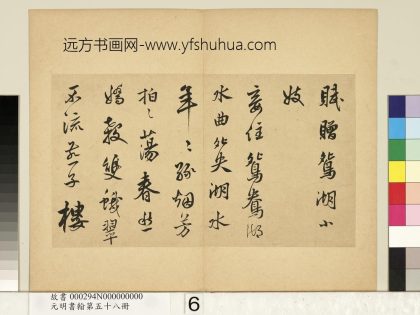 远方书画网-www.yfshuhua.com
賦贈鴛湖小
妓
妾住鴛鴦湖
水曲
湖水
年〻緑烟芳
拍〻蕩春
嬌 雙 翠
不流
樓
故書 000294N000000000
元明書翰第五十八冊
6